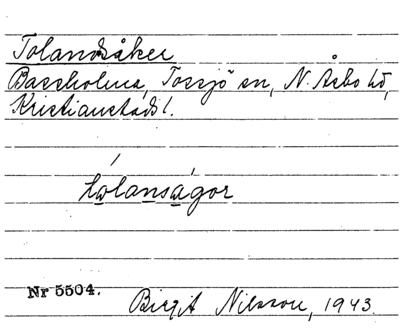 Tolandsåker
Bassholma, Tossjö sn, N. Åsbo hd,
Kristianstads l.
tolanságor
Nr 5504.
Birgit Nilsson, 1943.